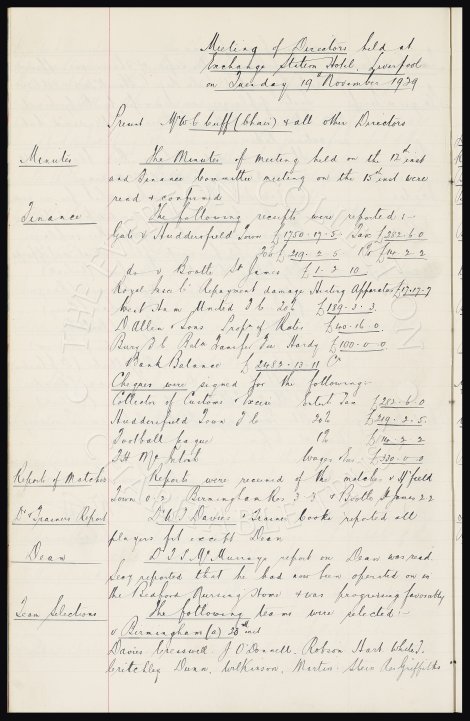 Meeting of Directors held at
Exchange Station Hotel, Liverpool
on Tuesday 19th November 1929
Present Mr W C Cuff (Chair) & all other Directors
Minutes
The Minutes of meeting held on the 12th inst
and Finance Committee meeting on the 15th inst were
read & confirmed
Finance
The following receipts were reported :-
Gate v Huddersfield Town £1750.17.5. Tax £282.6.0
20% £219.2.5 1% £14.2.2
do v Bootle St James £1.2.10
Repayment damage Heating Apparatus £17.17.7
West Ham United F C 20% £189.3.3
D Allen & Sons Propn of Rates £40.16.0
Bury F C Baln Transfer Fee Hardy £100.0.0
Bank Balance £2483.13.11 Cr
Cheques were signed for the following:-
Collector of Customs & Excise Entert Tax £282.6.0
Huddersfield Town F C 20% £219.2.5
Football League 1% £14.2.2
T H McIntosh Wages £330.0.0
Report of Matches
Reports were received of the matches v H'field
Town 0.2 Birmingham Res 3.3 & Bootle St James 2.2
Dr & Trainers Report
Dr W T Davies & Trainer Cooke reported all
players fit except Dean
Dean
report on Dean was read.
Secy reported that he had now been operated on in
the Nursing Home & was progressing favorably
Team Selections
The following teams were selected:-
v Birmingham (a) 23rd inst
Davies. Cresswell. J O'Donnell. Robson Hart White J.
Critchley Dunn. Wilkinson. Martin. Stein Res Griffiths